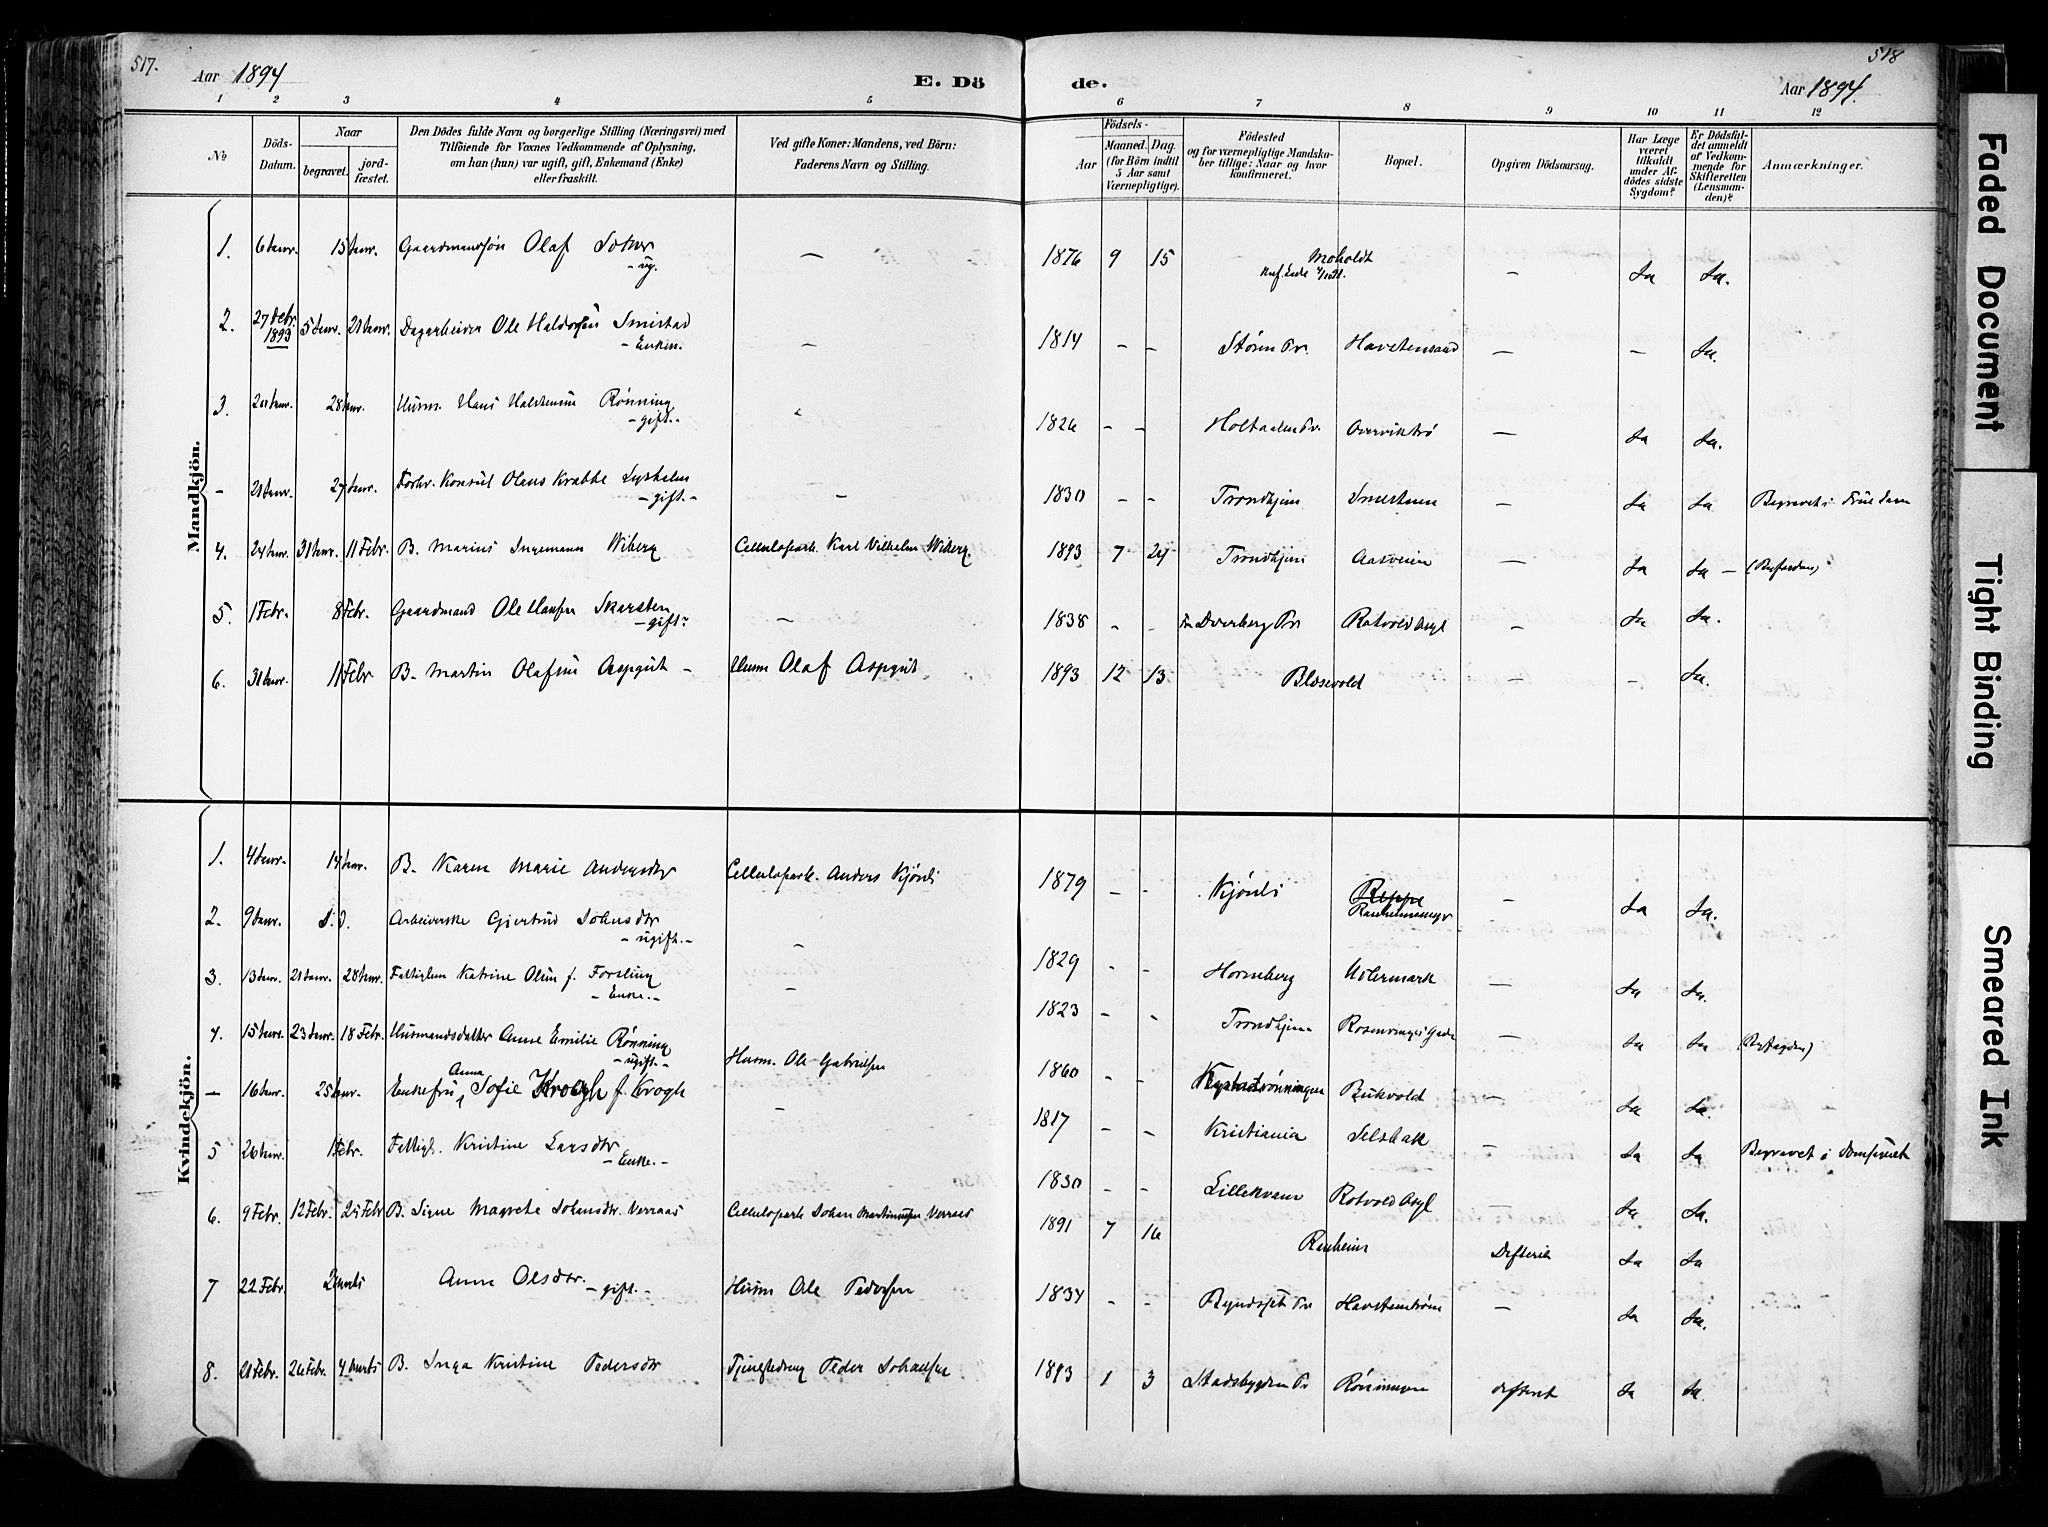 517.
Aar 1894
E. Dö
de.
518
Aar 1894.
1 2 3 4 5 6 7 8 9 10 11 12
No
Döds-Datum.
Naar
begravet.
jordfæstet.
Den Dödes fulde Navn og borgerlige Stilling (Næringsvei) med
Tilföiende for Voxnes Vedkommende af Oplysning,
om han (hun) var ugift, gift, Enkemand (Enke)
eller fraskilt.
Ved gifte Koner: Mandens, ved Börn:
Faderens Navn og Stilling.
Födsels-
Aar
Maaned. Dag.
(for Börn indtil
5 Aar samt
Værnepligtige).
Födested
og for værnepligtige Mandska-
ber tillige: Naar og hvor
konfirmeret.
Bopæl.
Opgiven Dödsaarsag.
Har Læge
været
tilkaldt
under Af-
dödes sidste
Sygdom?
Er Dödsfal-
det anmeldt
af Vedkom-
mende for
Skifteretten
(Lensman-
den)?
Anmærkninger.
Mandkjön.
1. 6 Janr. 15 Janr. Gaardmandssøn Olaf — 1876 9 15 Moholdt — Ja Ja.
- ug.
2. 27 Debr. 1893 5 Janr. 21 Janr. Dagarbeider Ole Haldorsen Smistad — 1814 - - Støren Pr. Havstensand — - Ja.
- Enkem.
3. 20 Janr. 28 Janr. Husm. Hans Halstensen Rønning 1826 - - Holtaalen Pr. — Ja Ja.
- gift. -
- 21 Janr. 27 Janr. Forhv. Konsul Claus Krabbe Lysholm — 1830 - - Trondhjem — Ja Ja Begravet i
- gift -
4. 24 Janr. 31 Janr. 11 Febr. B. Marius Ingemann Wiberg Celluloparb. Karl Vilhelm Wiberg 1893 7 24 Trondhjem Aasveien — Ja Ja —
5. 1 Febr. 8 Febr. Gaardmand Ole Hansen — 1838 - - Dverberg Pr. Rotvold Asyl — Ja Ja.
- gift -
6. 31 Janr. 11 Febr. B. Martin Olafsen Aspgut - Husm Olaf Aspgut 1893 12 13 Blæsevold — - Ja.
Kvindekjön.
1. 4 Janr. 14 Janr. B. Karen Marie Andersdtr Celluloparb. Anders Kjönli 1879 - - Kjönli Reppe — Ja Ja.
Ranheimsmyr
2. 9 Janr. Arbeiderske Gjertrud Johnsdtr — 1829 - - Horneberg — Ja Ja.
- ugift. -
3. 13 Janr. 21 Janr. 28 Janr. Fattiglem Katrine Olsen f. Forsling — 1823 - - Trondhjem — Ja Ja
- Enke. -
4. 15 Janr. 23 Janr. 18 Febr. Husmandsdatter Anne Emilie Rønning Husm. Ole Gabrielsen 1860 - - Bukvold — Ja Ja.
- ugift. -
- 16 Janr. 25 Janr. Enkefru Anna Sofie Krogh f. Krogh — 1817 - - Kristiania Selsbak — Ja Ja Begravet i
5 26 Janr. 1 Febr. Fattigl. Kristine Larsdtr 1830 - - Lillekvam Rotvold Asyl Ja Ja.
- Enke. -
6. 9 Febr. 12 Febr. 25 Febr B. Signe Magrete Johansdtr. Verraas Celluloparb Johan Martinusen Verraas 1891 7 16 Ranheim Difterie Ja Ja
7 22 Febr. 2 Marts Anne Olsdtr. - gift. - Husm Ole Pedersen 1834 - - Byneset Pr — Ja Ja.
8. 21 Febr. 26 Febr. 4 Marts B. Inga Kristine Pedersdtr Peder Johansen 1893 1 3 Stadsbygden Pr Ja Ja.
Faded Document
Tight Binding
Smeared Ink